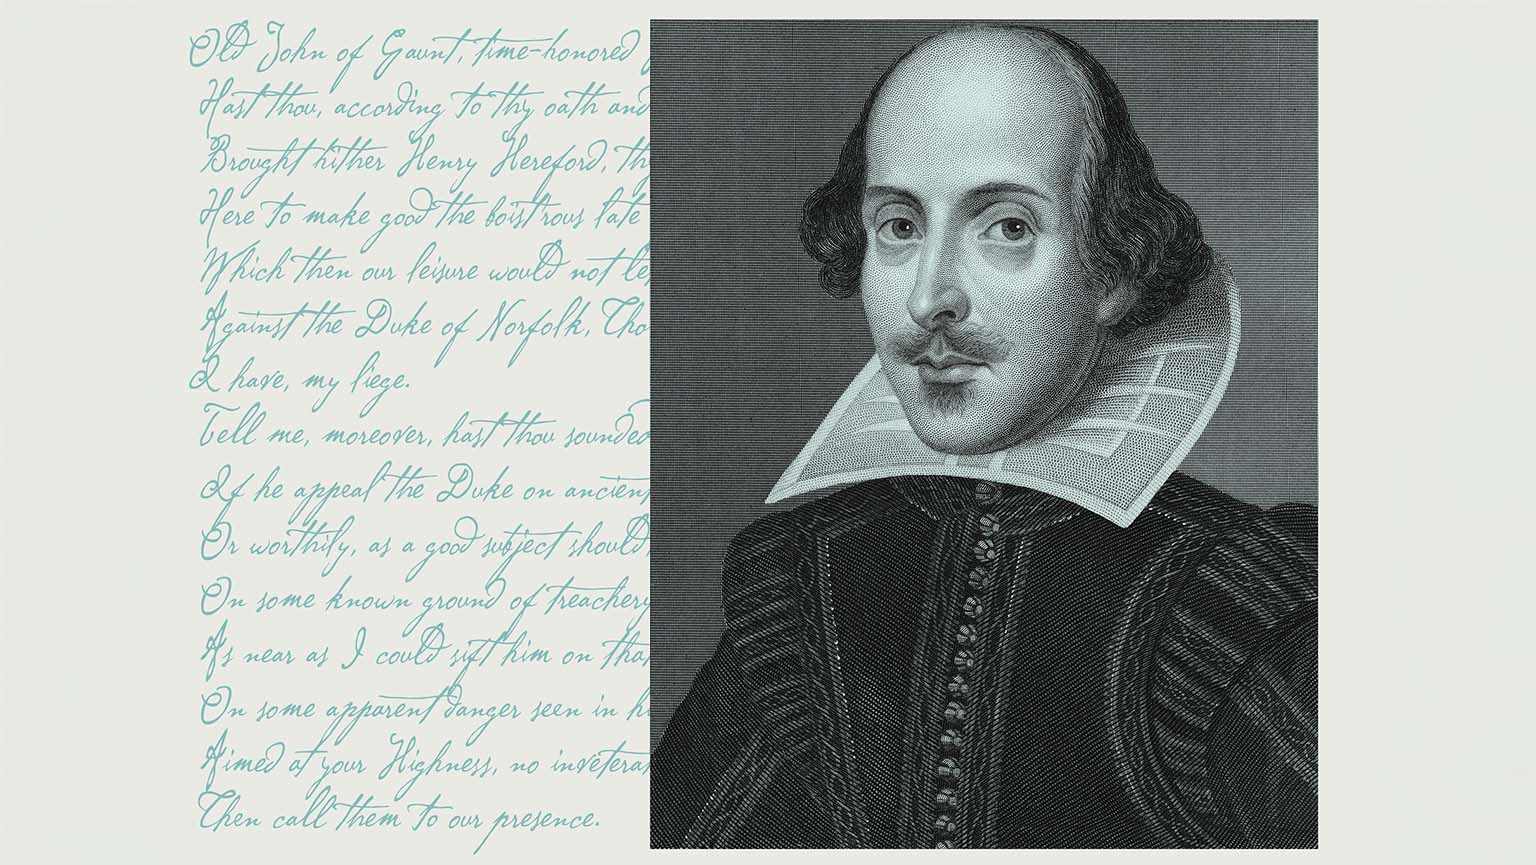 Old John of Gaunt, time-honored
Hast thou, according to thy oath and
Brought hither Henry Hereford, thy
Here to make good the boist'rous late
Which then our leisure would not le
Against the Duke of Norfolk, Tho
I have, my liege.
Tell me, moreover, hast thou sounded
If he appeal the Duke on ancien
Or worthily, as a good subject should,
On some known ground of treachery
As near as I could sift him on tha
On some apparent danger seen in h
Aimed at your Highness, no invetera
Then call them to our presence.